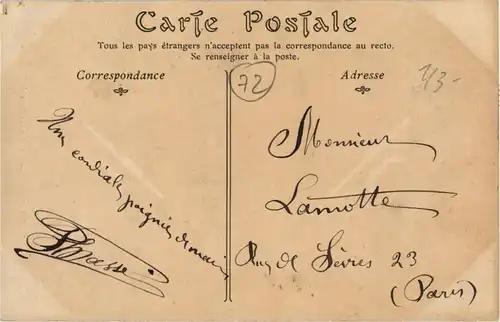 Carte Postale
Tous les pays étrangers n'acceptent pas la correspondance au recto.
Se renseigner à la poste.
Correspondance
Adresse
72
Une cordiale poignée de main
Monsieur
Lamotte
Rue de Sèvres 23
(Paris)